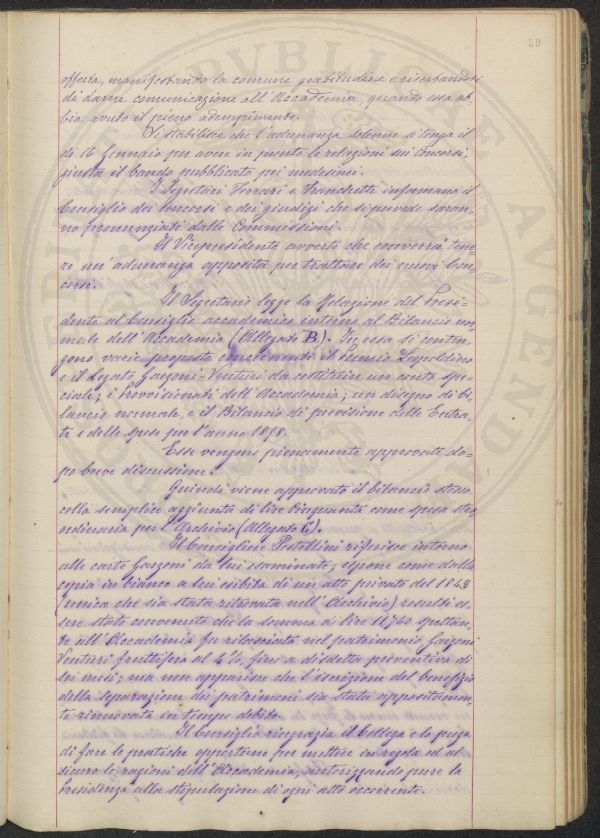 59
offerta, manifestando la comune gratitudine e riserbandosi
di darne comunicazione all'Accademia, quando essa ab-
bia avuto il pieno adempimento.
Si stabilisce che l'adunanza solenne si tenga il
dì 16 Gennaio per avere in pronto le relazioni sui Concorsi,
giusta il bando pubblicato pei medesimi.
I Segretari Ferrari e Franchetti informano il
Consiglio dei Concorsi e dei giudizi che si prevede saran-
no pronunziati dalle Commissioni.
Il Vicepresidente avverte che converrà tene-
re un'adunanza apposita per trattare dei nuovi Con-
corsi.
Il Segretario legge la Relazione del Presi-
dente al Consiglio accademico intorno al Bilancio nor-
male dell'Accademia (Allegato B). In essa si conten-
gono varie proposte concernenti il Premio Leopoldino
e il Legato Garzoni-Venturi da costituire un conto spe-
ciale; i Provvisionati dell'Accademia; un disegno di bi-
lancio normale, e il Bilancio di previsione delle Entra-
te e delle spese per l'anno 1898.
Esse vengono pienamente approvate do-
po breve discussione.
Quindi viene approvato il bilancio stesso
colla semplice aggiunta di lire Cinquanta come spesa stra-
ordinaria per l'Archivio (Allegato C).
Il Consigliere Pestellini riferisce intorno
alle carte Garzoni da lui esaminate; espone come dalla
copia in bianco a lui esibita di un atto privato del 1848
(unica che sia stata ritrovata nell'Archivio) resulti es-
sere stato convenuto che la somma di lire 11,760 spettan-
te all'Accademia fu rilasciata nel patrimonio Garzoni
Venturi fruttifera al 4%, fino a disdetta preventiva di
sei mesi; ma non apparisce che l'iscrizione del benefizio
della separazione dei patrimoni sia stata appositamen-
te rinnovata in tempo debito.
Il Consiglio ringrazia il Collega e lo prega
di fare le pratiche opportune per mettere in regola ed al
sicuro le ragioni dell'Accademia, autorizzando pure la
Presidenza alla stipulazione di ogni atto occorrente.
PUBLICAE
AUGENDAE